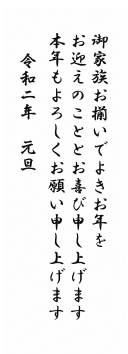 御家族お揃いでよきお年を
お迎えのこととお喜び申し上げます
本年もよろしくお願い申し上げます
令和二年　元旦